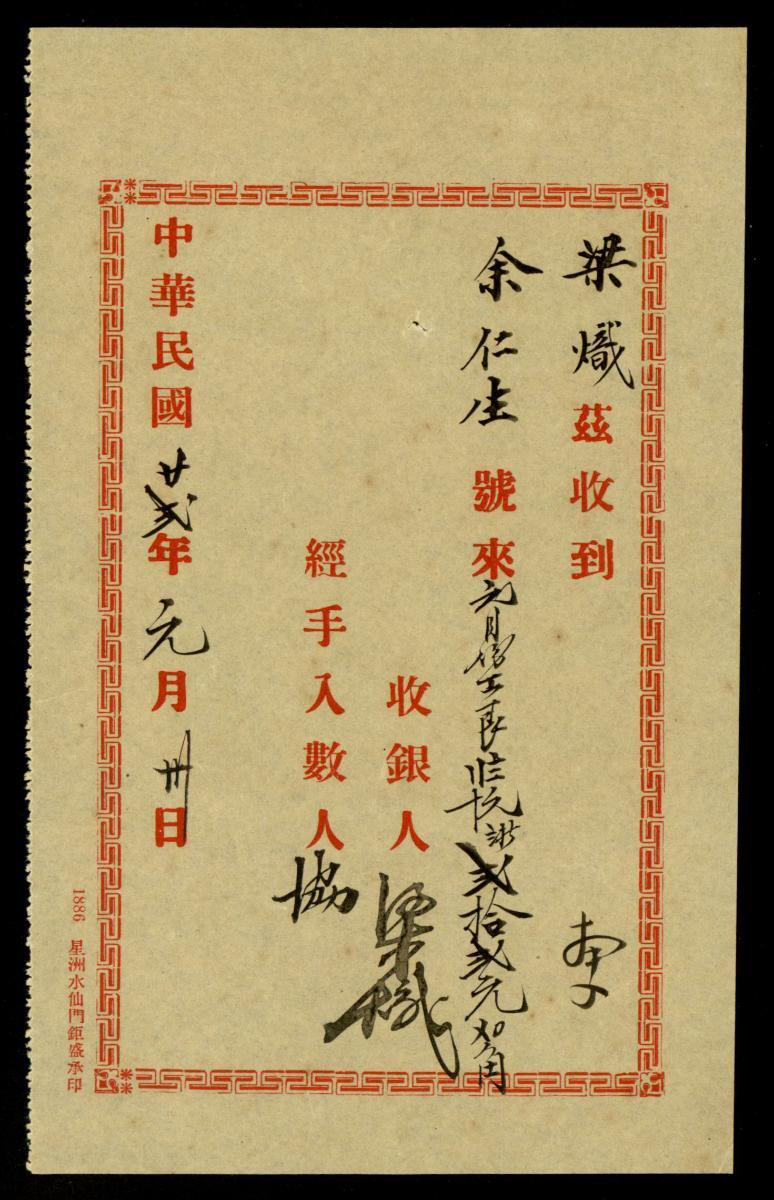 梁熾茲收到
余仁生號來元月份工金貳拾貳元
收銀人梁熾
經手入數人協
中華民國廿貳年元月卅日
1886 星洲水仙門鉅盛承印